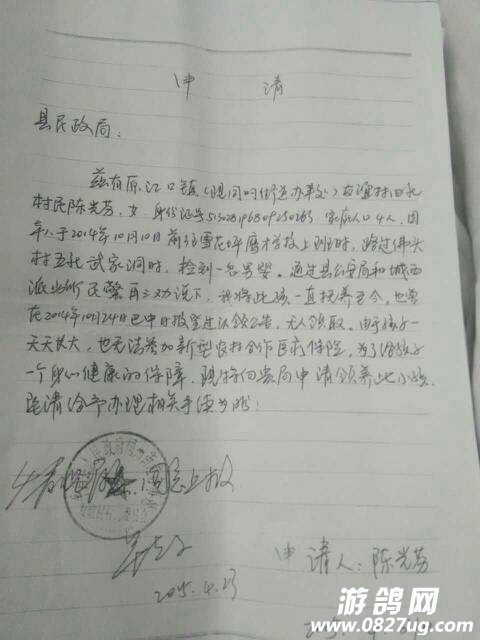 申 请
县民政局：
兹有原江口镇(现同州街道办事处)
村民陈光芬，女，身份证号513028196809250263，家庭人口4人，因
本人于2014年10月10日前往雪花坪磨子学校上班时，路过佛头
村五社武家洞时，捡到一名男婴。通过县公安局和城西
派出所民警再三劝说下，我将此孩一直抚养至今，也曾
在2014年10月24日巴中日报登过认领公告，无人领取。由于孩子一
天天长大，也无法参加新型农村合作医疗保险，为了给孩子
一个身心健康的保障，现特向贵局申请领养此小孩，
恳请给予办理相关手续为盼！
同意上报
2015.4.23
申请人：陈光芬
游鸽网
www.0827ug.com